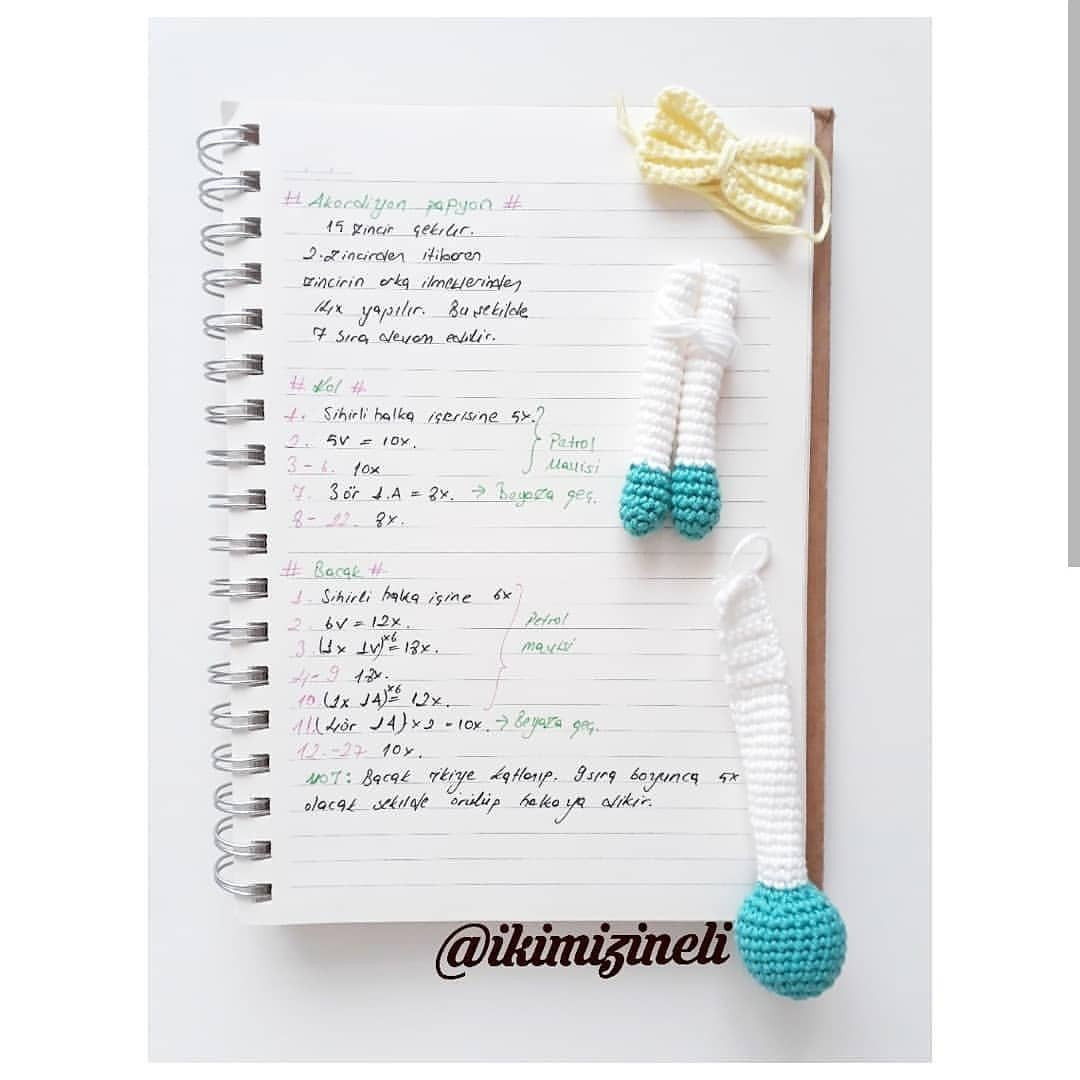 # Akordiyon papyon #
15 zincir çekilir.
2. zincirden itibaren
zincirin arka ilmeklerinden
14x yapılır. Bu şekilde
7 sıra devam edilir.
# Kol #
1. Sihirli halka içerisine 5x.
2. 5V = 10x.
3-6. 10x
Petrol
Mavisi
7. 3ör 1.A = 8x. → Beyaza geç.
8-22. 8x.
# Bacak #
1. Sihirli halka içine 6x
2. 6V = 12x.
3. (1x 1V)x6 = 18x.
Petrol
mavisi
4-9 18x.
10. (1x 1A)x6 = 12x.
11. (4ör 1A) x 2 = 10x. → Beyaza geç.
12.-27 10x.
NOT: Bacak ikiye katlanıp. 9 sıra boyunca 5x
olacak şekilde örülüp halkaya dikilir.
@ikimizineli